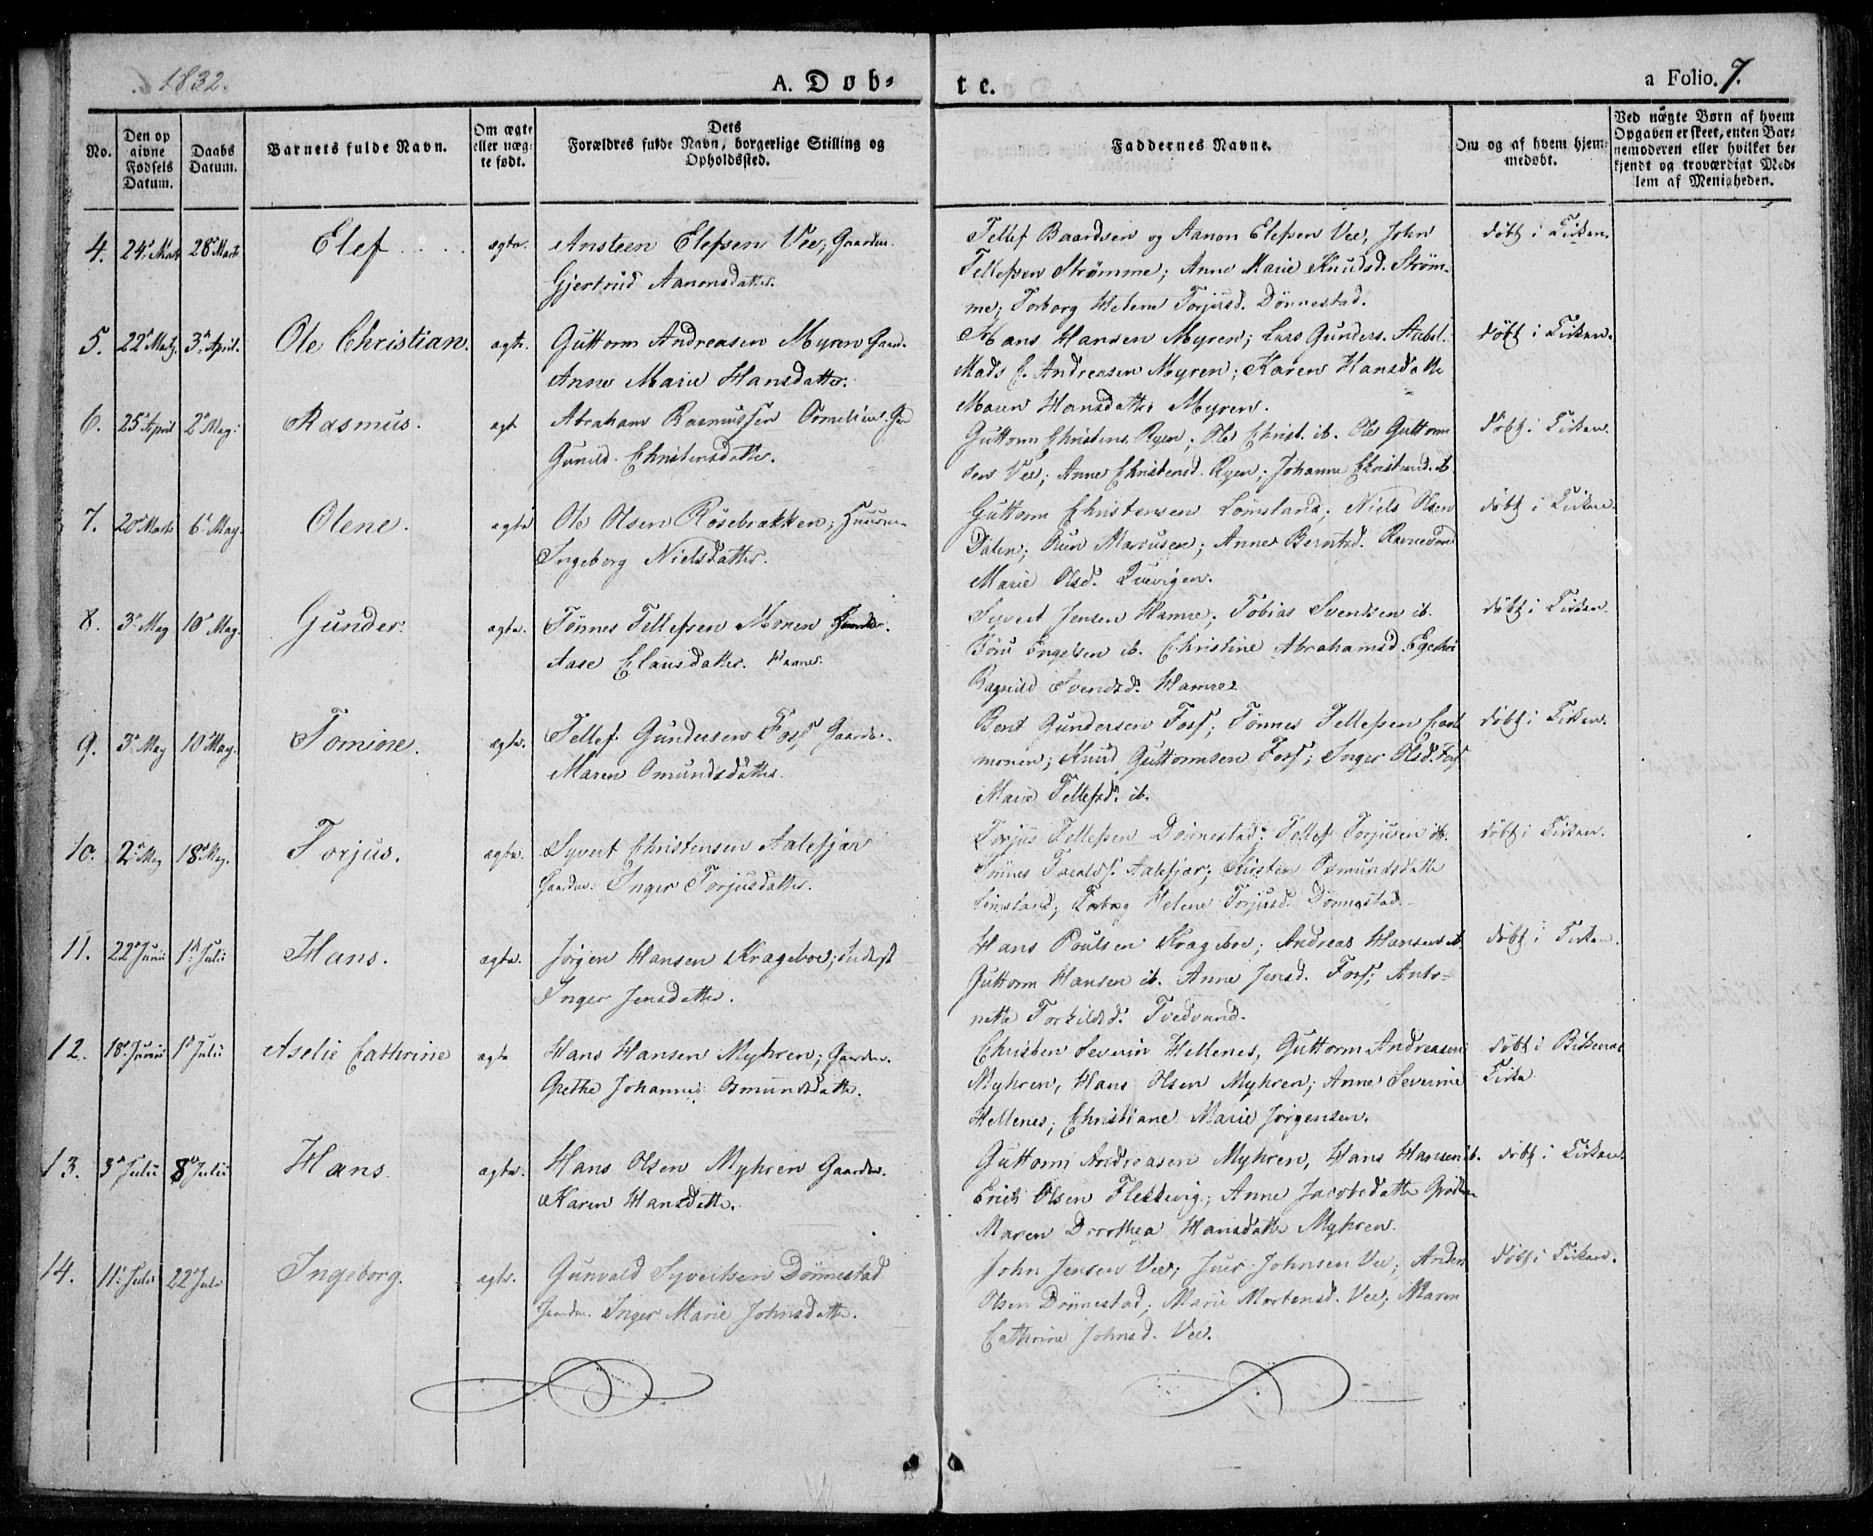 1832.
A. Døb-
te.
a Folio. 7.
No.
Den op
givne
Fødsels
Datum.
Daabs
Datum.
Barnets fulde Navn.
Om ægte
eller uæg-
te født.
Dets
Forældres fulde Navn, borgerlige Stilling og
Opholdssted.
Faddernes Navne.
Om og af hvem hjem-
medøbt.
Ved uægte Børn af hvem
Opgaven er skeet, enten Bar-
nemoderen eller hvilket be-
kjendt og troværdigt Med-
lem af Menigheden.
4. 24de Marts 28de Marts Elef ægte. Ansteen Elefsen Vee, Gaardm.
Gjertrud Aanonsdatter.
Tellef Baardsen og Aanon Elefsen Vee, John
Tellefsen Strømme; Anne Marie Knudsd. Strøm-
me; Torborg Helene Torjusd. Dønnestad.
døbt i Kirken.
5. 22de Marts. 3de April. Ole Christian. ægte. Guttorm Andreasen Myren Gaardm.
Anne Marie Hansdatter.
Hans Hansen Myren; Lars Gunders.
Mads C. Andreasen Myren; Karen Hansdatter
Maren Hansdatter Myren.
døbt i Kirken.
6. 25de April 2de May. Rasmus. ægte Abraham Rasmussen
Gunild Christensdatter.
Guttorm Christens. Ryen; Ole Christ. ib. Ole Guttorm
sen Vee; Anne Christensd. Ryen; Johanne Christensd. ib.
døbt i Kirken.
7. 20de Marts 6te May. Olene. ægte Ole Olsen Røsebrakken; Huusm.
Ingeborg Nielsdatter.
Guttorm Christensen Lømsland; Niels Olsen
Dalen; Marcusen; Anne Berntsd.
Marie Olsd. Qvevigen.
døbt i Kirken.
8. 3de May 10de May. Gunder. ægte. Tønnes Tellefsen Monen
Aase Clausdatter. Hamre.
Syvert Jensen Hamre; Tobias Svendsen ib.
Engelsen ib. Christine Abrahamsd.
Ragnild Svendsd. Hamre
døbt i Kirken.
9. 3de May 10de May. Tomine. ægte. Tellef Gundersen Foss Gaardm.
Maren Omundsdatter.
Bent Gundersen Foss; Tønnes Tellefsen
monen; Knud Guttormsen Foss; Inger Olsd. Foss
Marie Tellefsd. ib.
døbt i Kirken.
10. 2de May 18de May. Torjus. ægte. Syvert Christensen Aalefjær
Gaardm. Inger Torjusdatter.
Torjus Tellefsen Dønnestad; Tellef Torjusen ib.
Tønnes Aalefjær; Kirsten Osmundsdatter
Torborg Helene Torjusd. Dønnestad.
døbt i Kirken.
11. 22de Junii 1ste Julii Hans. ægte. Jørgen Hansen Krageboe; Inderst
Inger Jensdatter.
Hans Poulsen Krageboe; Andreas Hansen ib.
Guttorm Hansen ib. Anne Jensd. Foss; Anto-
nette Torkildsd. Tvedvand.
døbt i Kirken.
12. 18de Junii 1ste Julii Aselie Cathrine ægte Hans Hansen Myhren; Gaardm.
Grethe Johanne Osmundsdatter.
Christen Severin Hellenes, Guttorm Andreasen
Myhren, Hans Olsen Myhren; Anne Severine
Hellenes; Christiane Marie Jørgensen.
døbt i Birkenæs
Kirke
13. 3de Julii 8de Julii Hans. ægte. Hans Olsen Myhren Gaardm.
Karen Hansdatter.
Guttorm Andreasen Myhren, Hans Hansen ib.
Erich Olsen Flesevig; Anne Jacobsdatter
Maren Dorothea Hansdatter Myhren.
døbt i Kirken.
14. 11te Julii 22de Julii Ingeborg. ægte. Gunvald Syvertsen Dønnestad
Gaardm. Inger Marie Johnsdatter.
John Jensen Vee; Juer Johnsen Vee; Anders
Olsen Dønnestad; Marie Mortensd. Vee; Maren
Cathrine Johnsd. Vee.
døbt i Kirken.